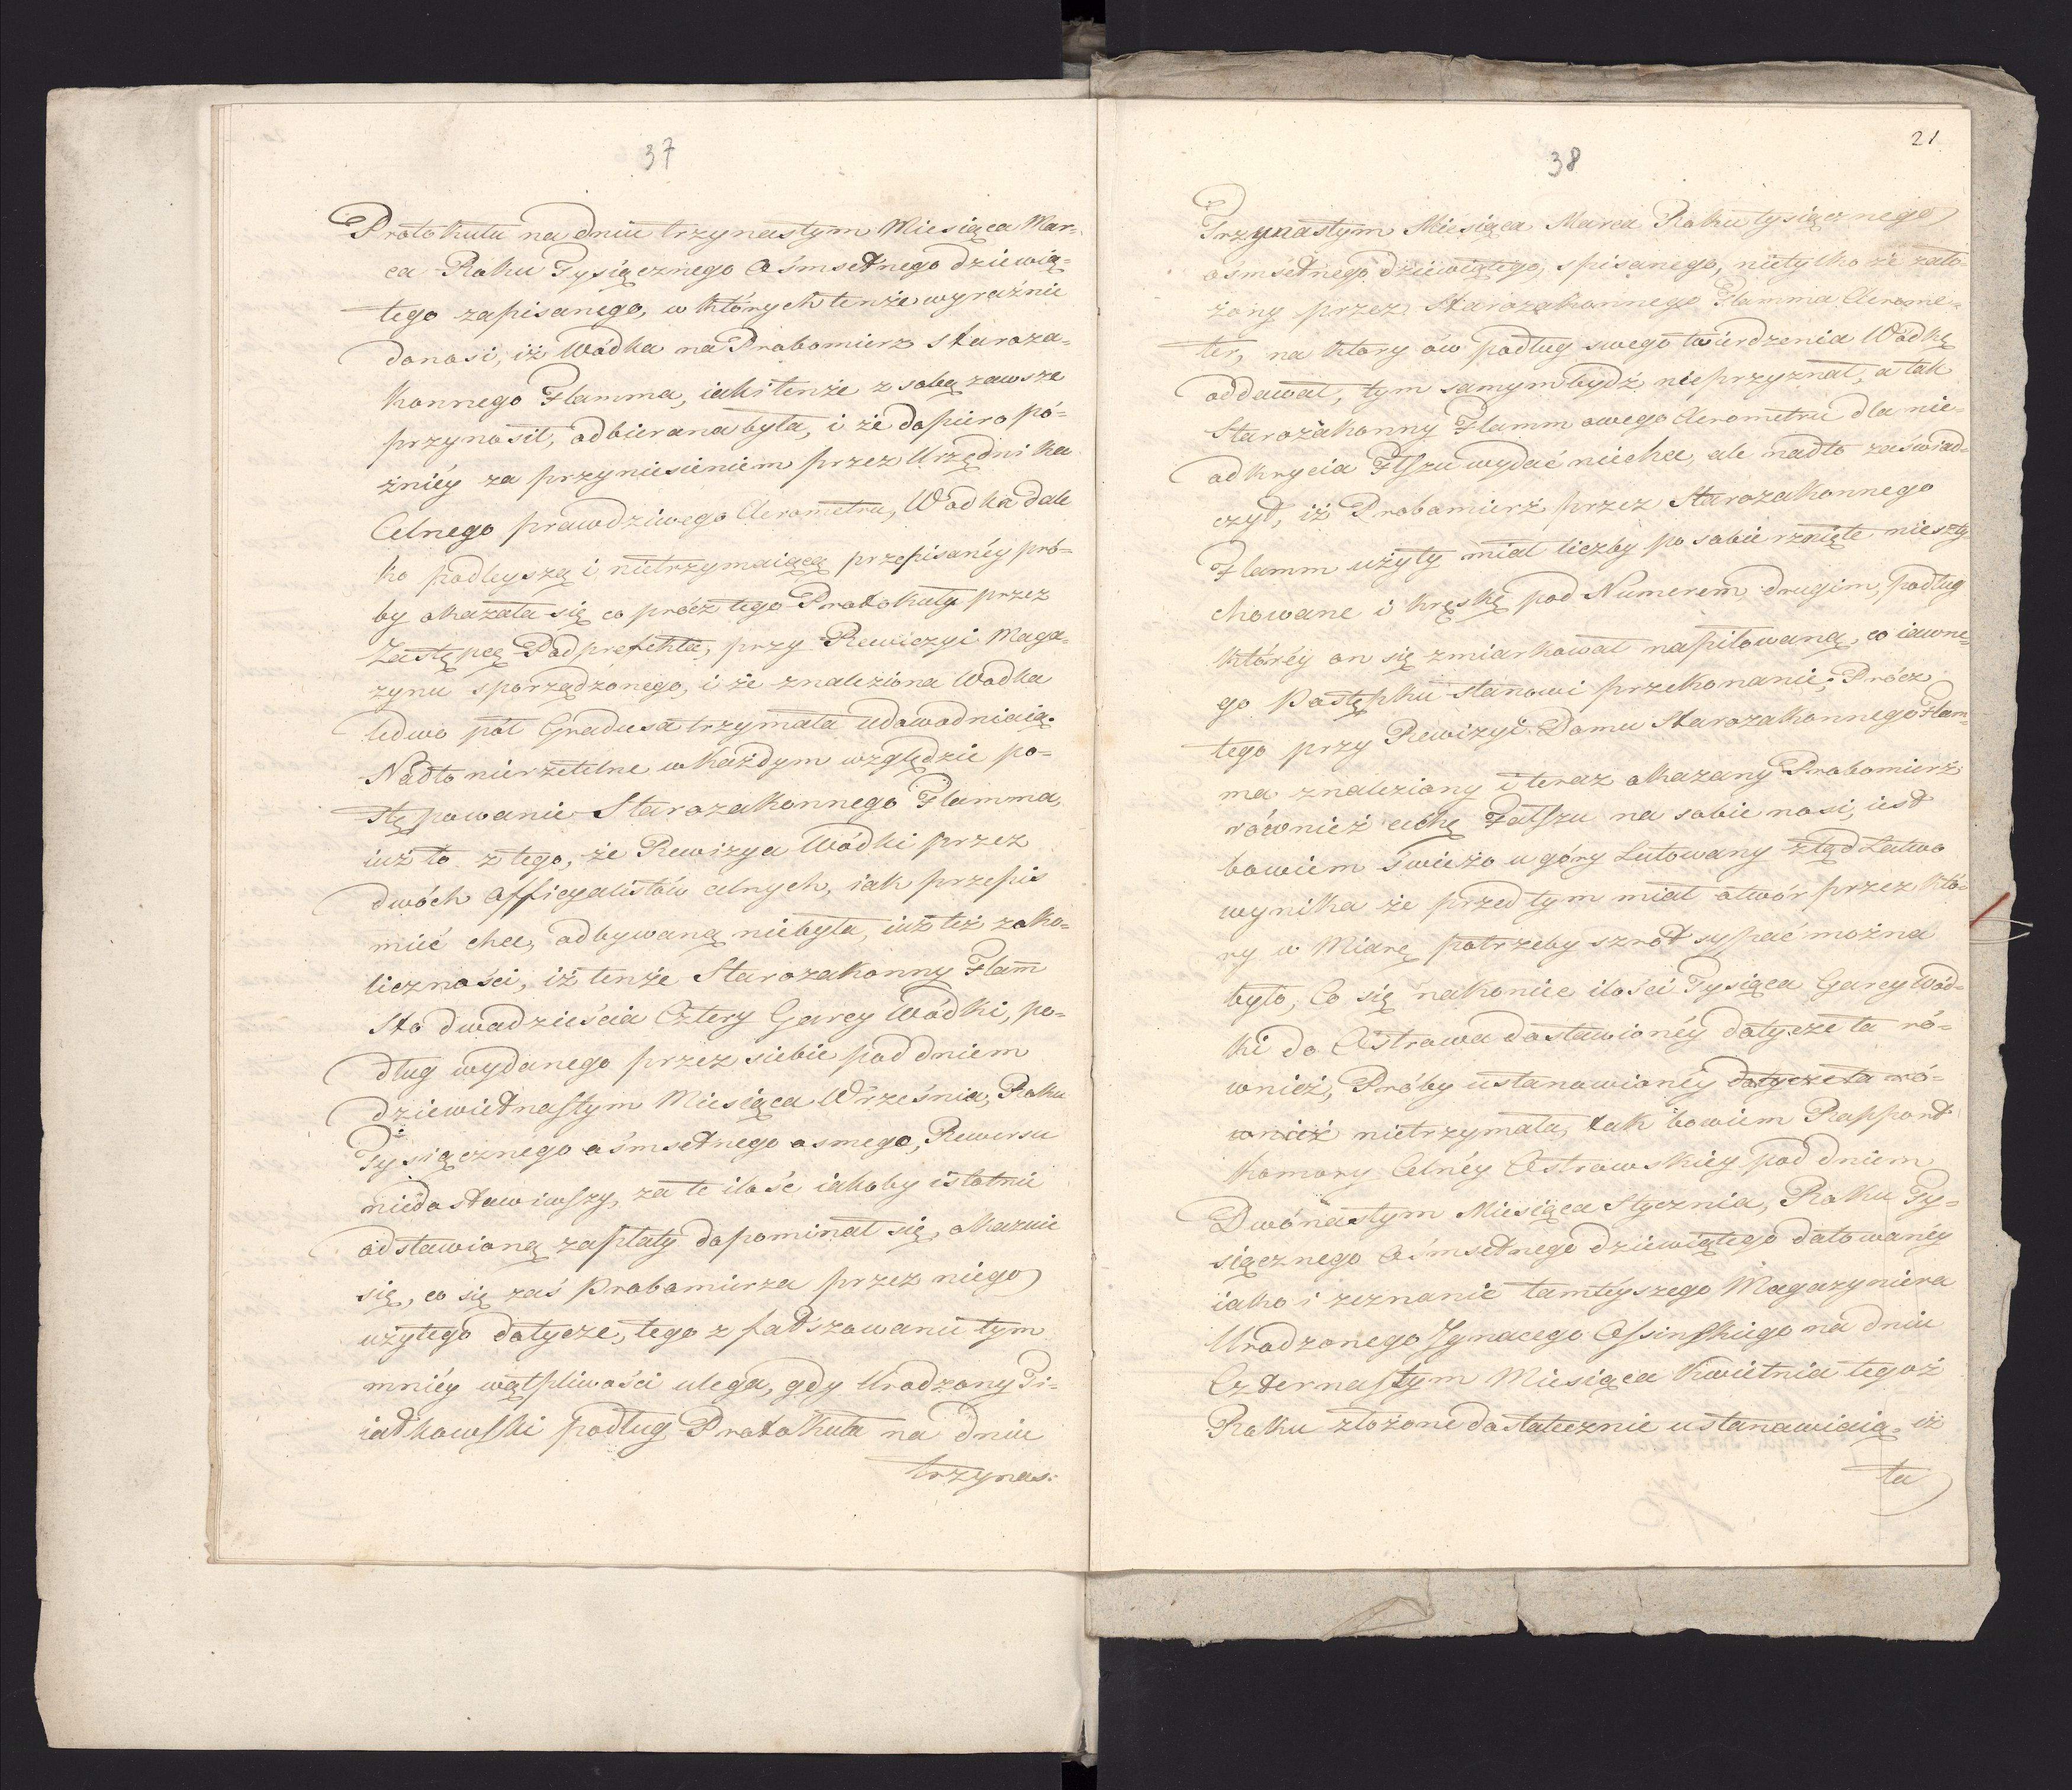 37
Protokułu na dniu trzynastym Miesiąca Mar=
ca Roku Tysiącznego Ośmsetnego dziewią=
tego zapisanego, w których tenże wyraźnie
donosi, iż Wódka na Probomierz staroza=
konnego Flamma, iaki tenże z sobą zawsze
przynosił, odbierana była, i że dopiero pó=
źniéy za przyniesieniem przez Urzędnika
Celnego prawdziwego Aerometru, Wódka dale
ko podleyszą i nietrzymaiącą przepisanéy pró=
by okazała się co prócz tego Protokuły przez
Zastępcę Podprefekta, przy Rewiezyi Maga=
zynu sporządzonego, i że znaleziona Wodka
ledwo pół Gradusa trzymała udowodniaią.
Nadto nierzetelne w każdym względzie po=
stępowanie Starozakonnego Flamma,
iuż to z tego, że Rewizya Wódki przez
dwóch Officyalistów celnych, iak przepis
mieć chce, odbywaną niebyła, iuż też z oko=
liczności, iż tenże Starozakonny Flam̄
Sto dwadzieścia Cztery Garcy Wódki, po=
dług wydanego przez siebie pod dniem
dziewiętnastym Miesiąca Września, Roku
Tysiącznego ośmsetnego osmego, Rewersu
niedostawiwszy, za te ilość iakoby istotnie
odstawioną zapłaty dopominał się, okazuie
się, co się zaś Probomierza przez niego
użytego dotycze, tego z fałszowanie tym
mniéy wątpliwości ulega, gdy Urodzony Pi=
iatkowski podług Protokułu na dniu
trzynas:
21
38
Trzynastym Miesiąca Marca Roku tysiącznego
ośmsetnego dziewiątego, spisanego, nietylko że zało=
żony przez Starozakonnego Flamma Aerome=
ter, na ktory ów podług swego twierdzenia Wódkę
oddawał, tym samym bydź nieprzyznał, a tak
Starozakonny Flamm owego Aerometru dla nie=
odkrycia Fłszu wydać niechce, ale nadto zaświad=
czył, iż Probomierz przez Starozakonnego
Flamm użyty miał liczby po sobie rznięte nieszty
chowane i kręskę pod Numerem drugim, podług
któréy on się zmiarkował napiłowaną, co iawne=
go Postępku stanowi przekonanie; Prócz
tego przy Rewizyi Domu Starozakonnego Flam=
ma znaleziony i teraz okazany Probomierz
również cechę Fałszu na sobie nosi, iest
bowiem świeżo u góry Lutowany ztąd Łatwo
wynika że przed tym miał otwór przez któ=
ry w Miarę potrzeby szrót sypać można
było, Co się nakoniec ilości Tysiąca Garcy Wód=
ki do Ostrowa dostawionéy dotycze ta ró=
wnież, Próby ustanowionéy dotycze ta ró=
wnież nietrzymała, tak bowiem Rapport
Komory Celnéy Ostrowskiey pod dniem
Dwónastym Miesiąca Stycznia, Roku Ty=
siącznego Ośmsetnego dziewiątego datowanéy
iako i zeznanie tamteyszego Magazyniera
Urodzonego Ignacego Ossinskiego na dniu
Czternastym Miesiąca Kwietnia tegoż
Roku złożone dostatecznie ustanawiaią, iż
ta